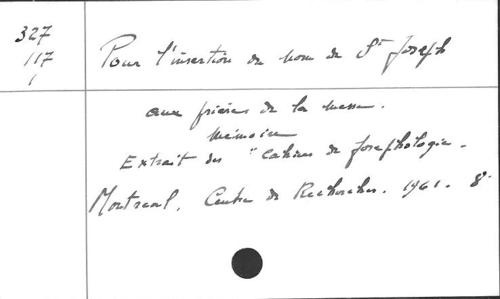 327
117
1
Pour l'insertion du nom de St Joseph
aux prières de la messe.
Mémoire
Extrait des "Cahiers de Josephologie.
Montreal. Centre de Recherches. 1961. 8°